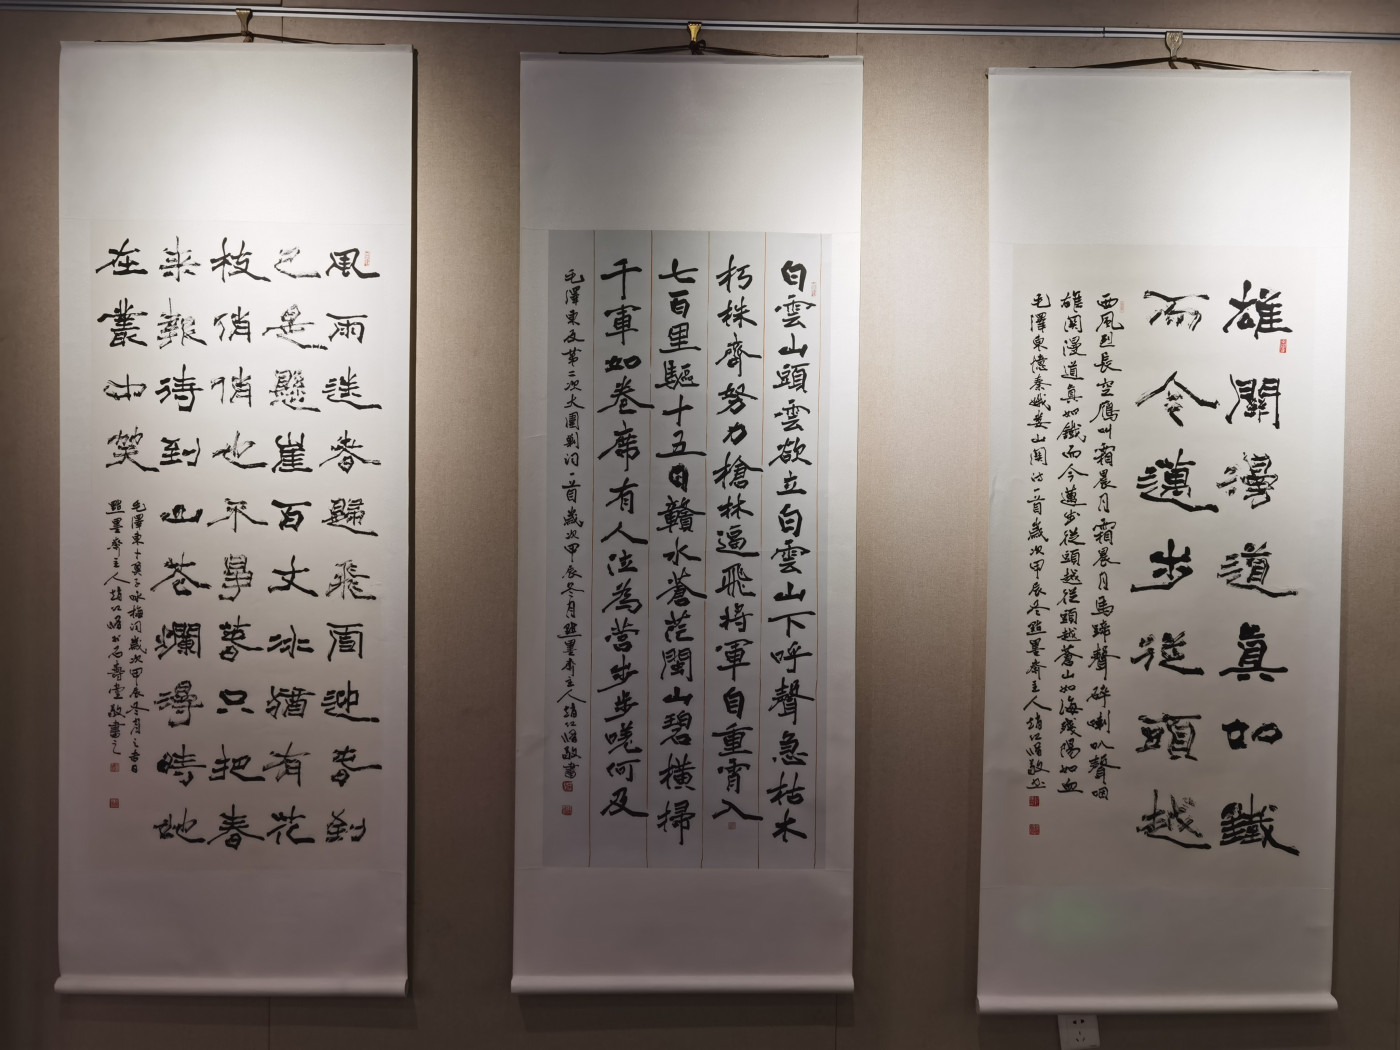 雄關漫道真如鐵
而今邁步從頭越
西風烈長空鴈叫霜晨月霜晨月馬蹄聲碎喇叭聲咽
雄關漫道真如鐵而今邁步從頭越從頭越蒼山如海殘陽如血
毛澤東憶秦娥婁山關詞一首歲次甲辰冬點墨齋主人趙江敬書
白雲山頭雲欲立白雲山下呼聲急枯木
朽株齊努力槍林逼飛將軍自重霄入
七百里驅十五日贛水蒼茫閩山碧橫掃
千軍如卷席有人泣為營步步嗟何及
毛澤東反第二次大圍剿詞一首歲次甲辰冬月點墨齋主人趙江敬書
風雨送春歸飛雪迎春到
已是懸崖百丈冰猶有花
枝俏俏也不爭春只把春
來報待到山花爛漫時她
在叢中笑
毛澤東卜算子咏梅詞歲次甲辰冬月之吉日
點墨齋主人趙江書石壽堂敬書之